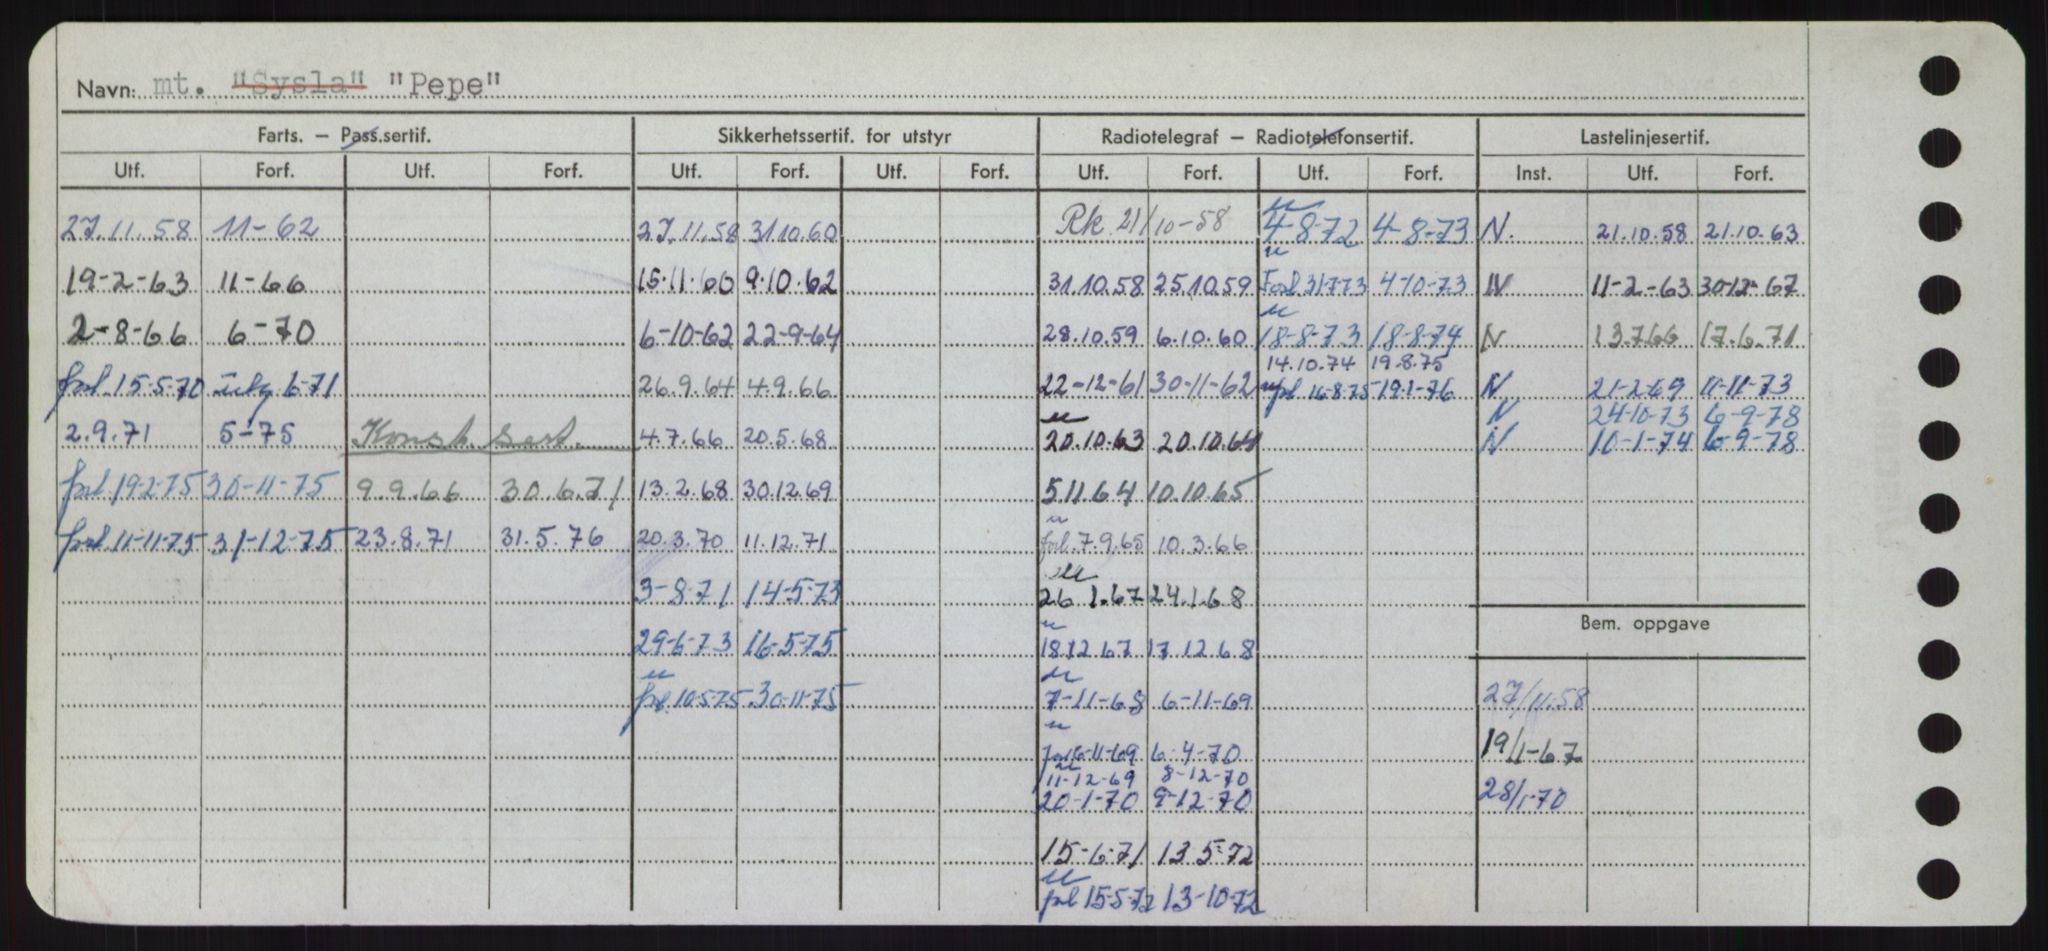 Navn: mt. "Sysla" "Pepe"
Farts. – Pass.sertif. Sikkerhetssertif. for utstyr Radiotelegraf – Radiotelefonsertif. Lastelinjesertif.
Utf. Forf. Utf. Forf. Utf. Forf. Utf. Forf. Utf. Forf. Utf. Forf. Inst. Utf. Forf.
27.11.58 11-62 27.11.58 31.10.60 Rk 21/10-58 4-8-72 4-8-73 N. 21.10.58 21.10.63
19-2-63 11-66 15.11.60 9.10.62 31.10.58 25.10.59 Forl 31773 4-10-73 N 11-2-63 30-12-67
2-8-66 6-70 6-10-62 22-9-64 28.10.59 6.10.60 18-8-73 18-8-74 N 13.7.66 17.6.71
14.10.74 19.8.75
forl. 15-5-70 6-71 26.9.64 4.9.66 22-12-61 30-11-62 forl 16-8-75 19-1-76 N 21-2-69 11-11-73
N 24-10-73 6-9-78
2.9.71 5-75 Konst. sert. 4.7.66 20.5.68 20.10.63 20.10.64 N 10-1-74 6-9-78
forl. 19-2-75 30-11-75 9.9.66 30.6.71 13.2.68 30.12.69 5.11.64 10.10.65
forl. 11-11-75 31-12-75 23.8.71 31.5.76 20.3.70 11.12.71 forl. 7.9.65 10.3.66
3-8-71 14-5-73 26.1.67 24.1.68
Bem. oppgave
29-6-73 16-5-75 18.12.67 17.12.68
forl. 10-5-75 30-11-75 7-11-68 6-11-69 27/11.58
forl 6-11-69 6-4-70 19/1-67
11-12-69 8-12-70
20-1-70 9-12-70 28/1-70
15-6-71 13-5-72
forl 15-5-72 13-10-72